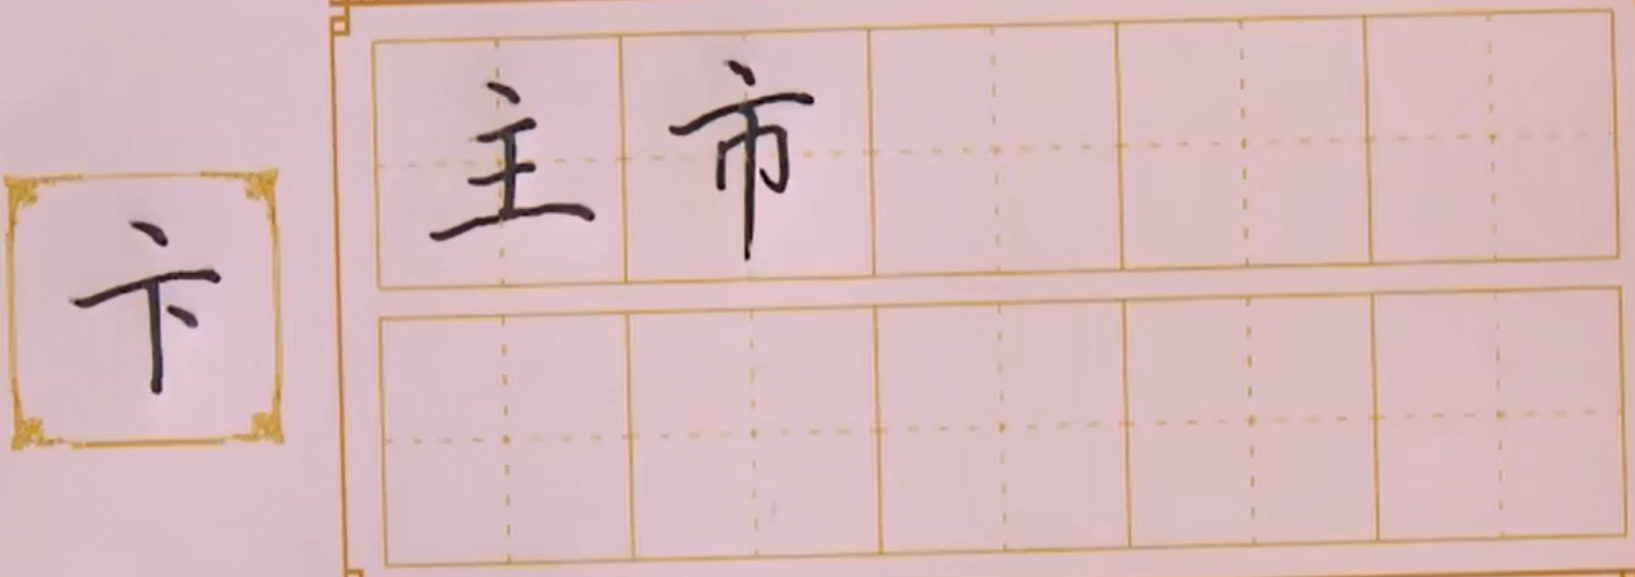 卞
主市